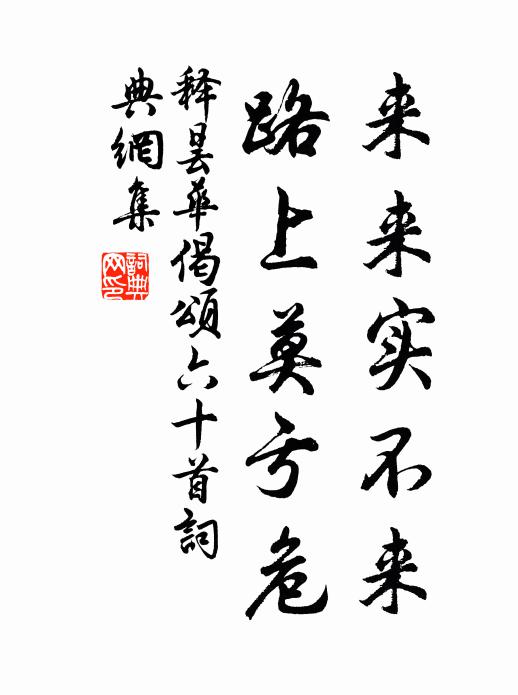 来来实不来
路上莫亏危
释昙华偈颂六十首詞
典網集
詞典
网印